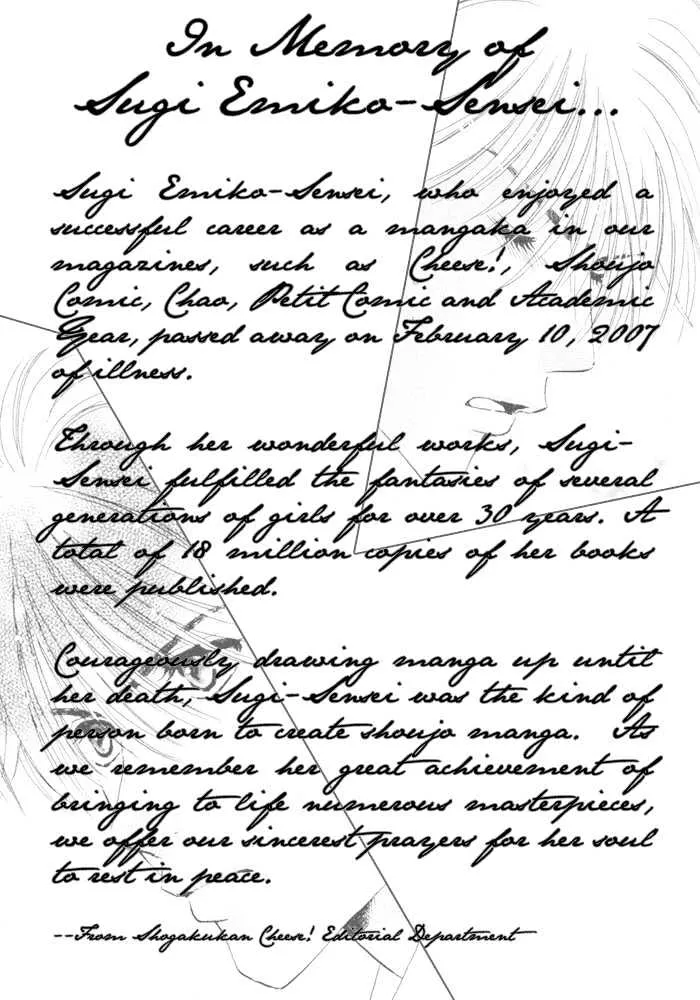 In Memory of
Sugi Emiko-Sensei...
Sugi Emiko-Sensei, who enjoyed a
successful career as a mangaka in our
magazines, such as Cheese!, Shoujo
Comic, Chao, Petit Comic and Academic
Year, passed away on February 10, 2007
of illness.
Through her wonderful works, Sugi-
Sensei fulfilled the fantasies of several
generations of girls for over 30 years. A
total of 18 million copies of her books
were published.
Courageously drawing manga up until
her death, Sugi-Sensei was the kind of
person born to create shoujo manga. As
we remember her great achievement of
bringing to life numerous masterpieces,
we offer our sincerest prayers for her soul
to rest in peace.
--From Shogakukan Cheese! Editorial Department